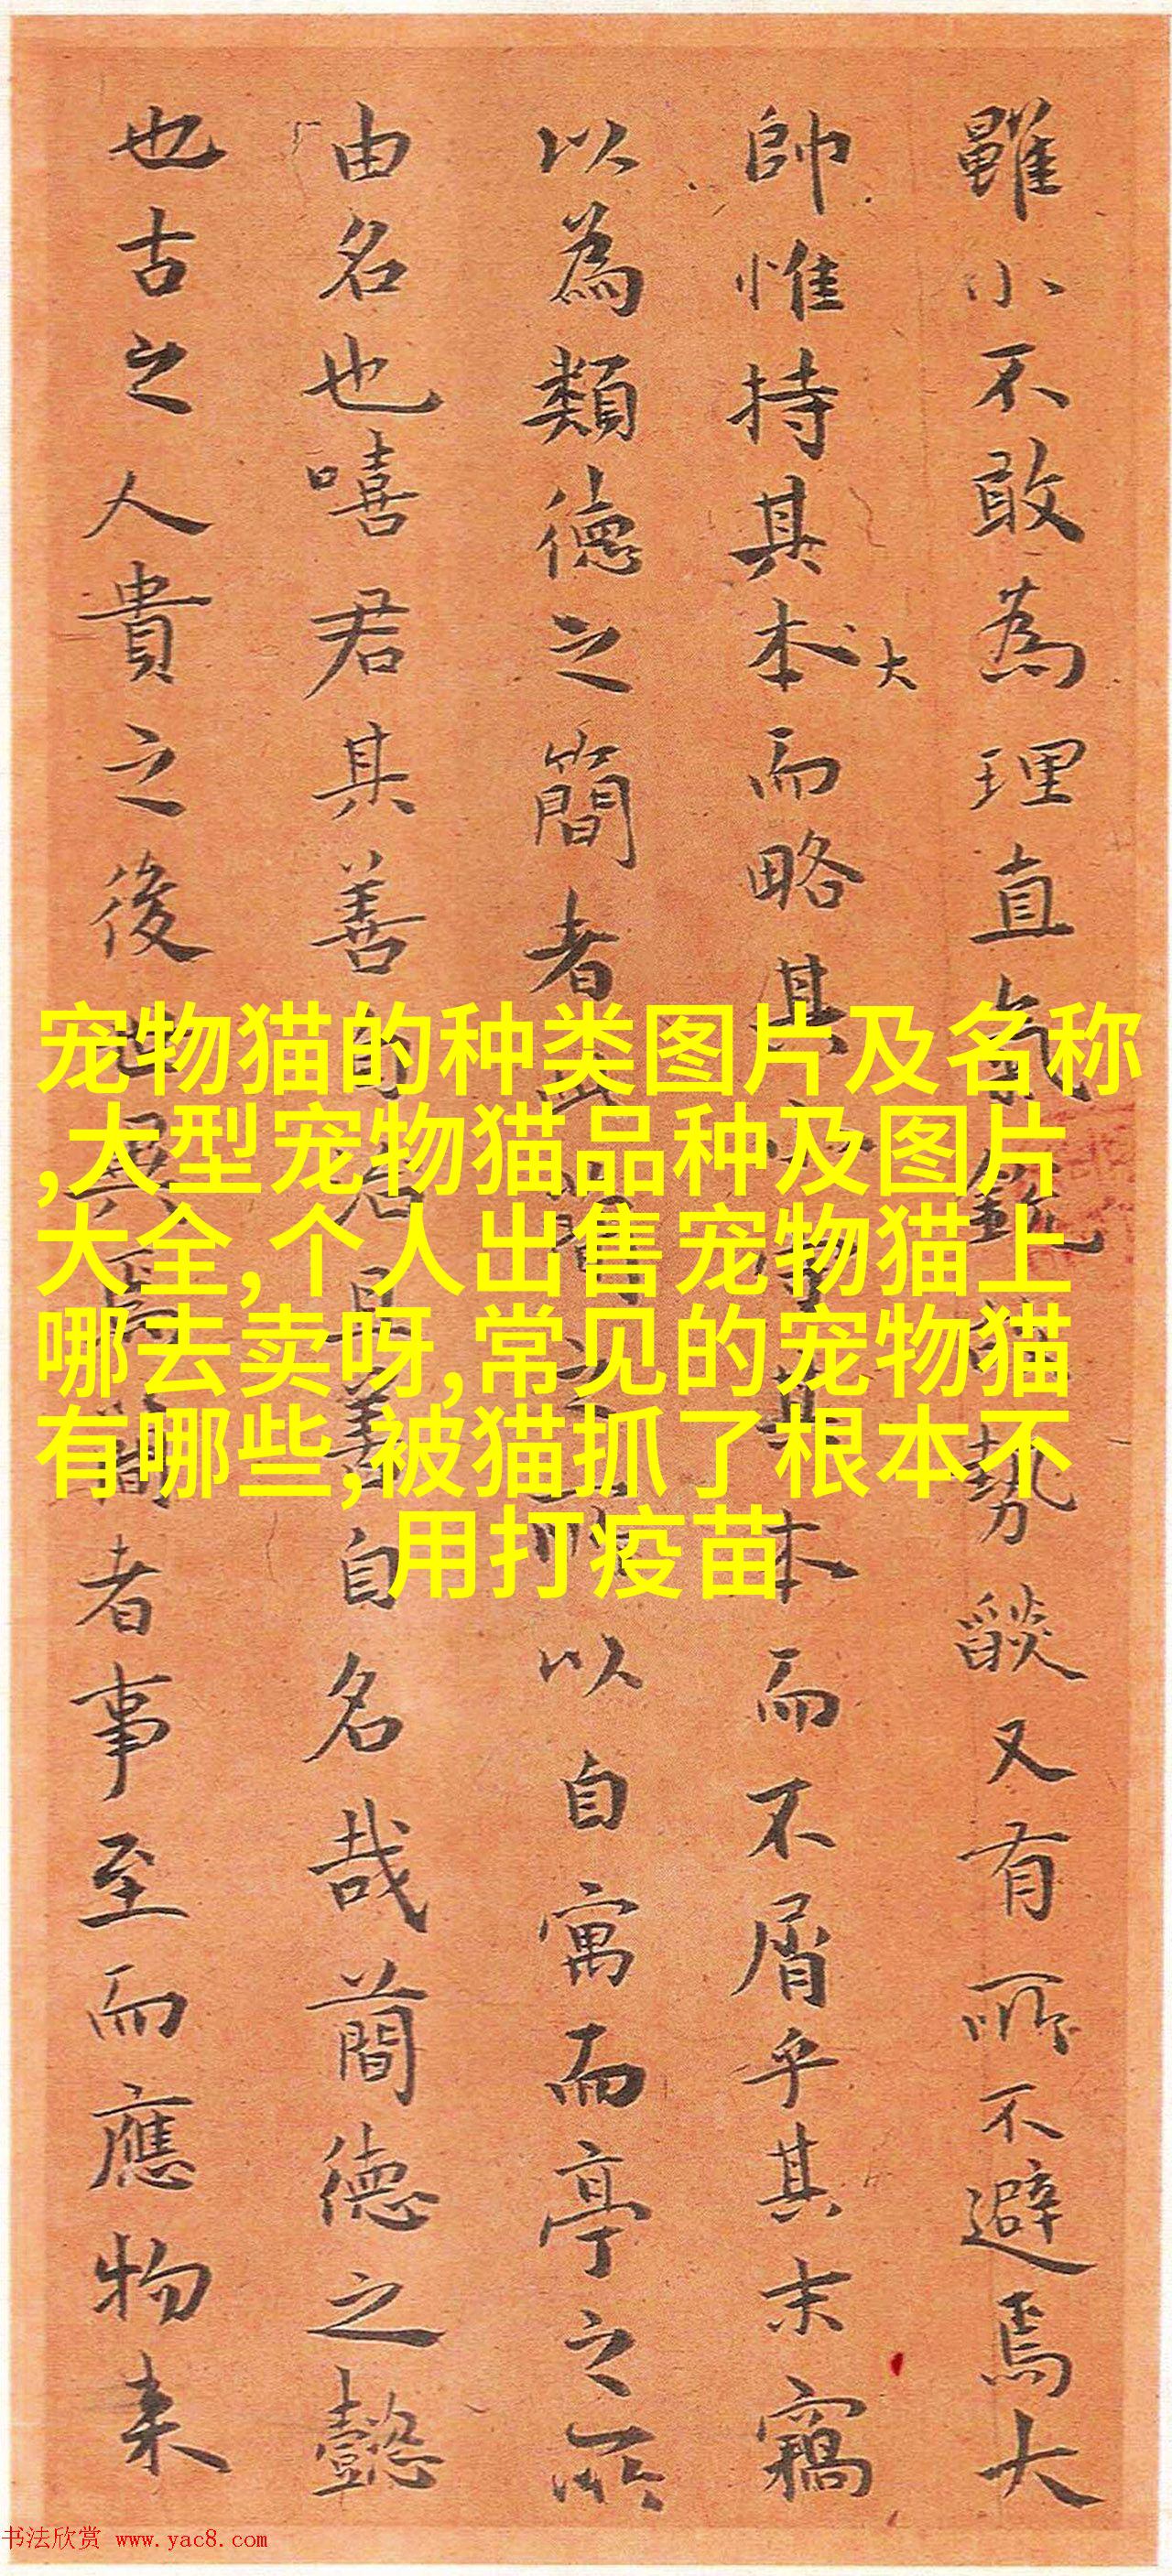 雖小不敢為理直氣銳勢燄又有所不避焉大
帥惟持其本大而略其其本而不屑乎其末竊
以為類德之簡者以自寓而亭之所
由名也嘻君其善自名善自名哉蕳德之懿
也古之人貴之後者事至而應物来
宠物猫的种类图片及名称
,大型宠物猫品种及图片
大全,个人出售宠物猫上
哪去卖呀,常见的宠物猫
有哪些,被猫抓了根本不
用打疫苗
书法欣赏 www.yac8.com